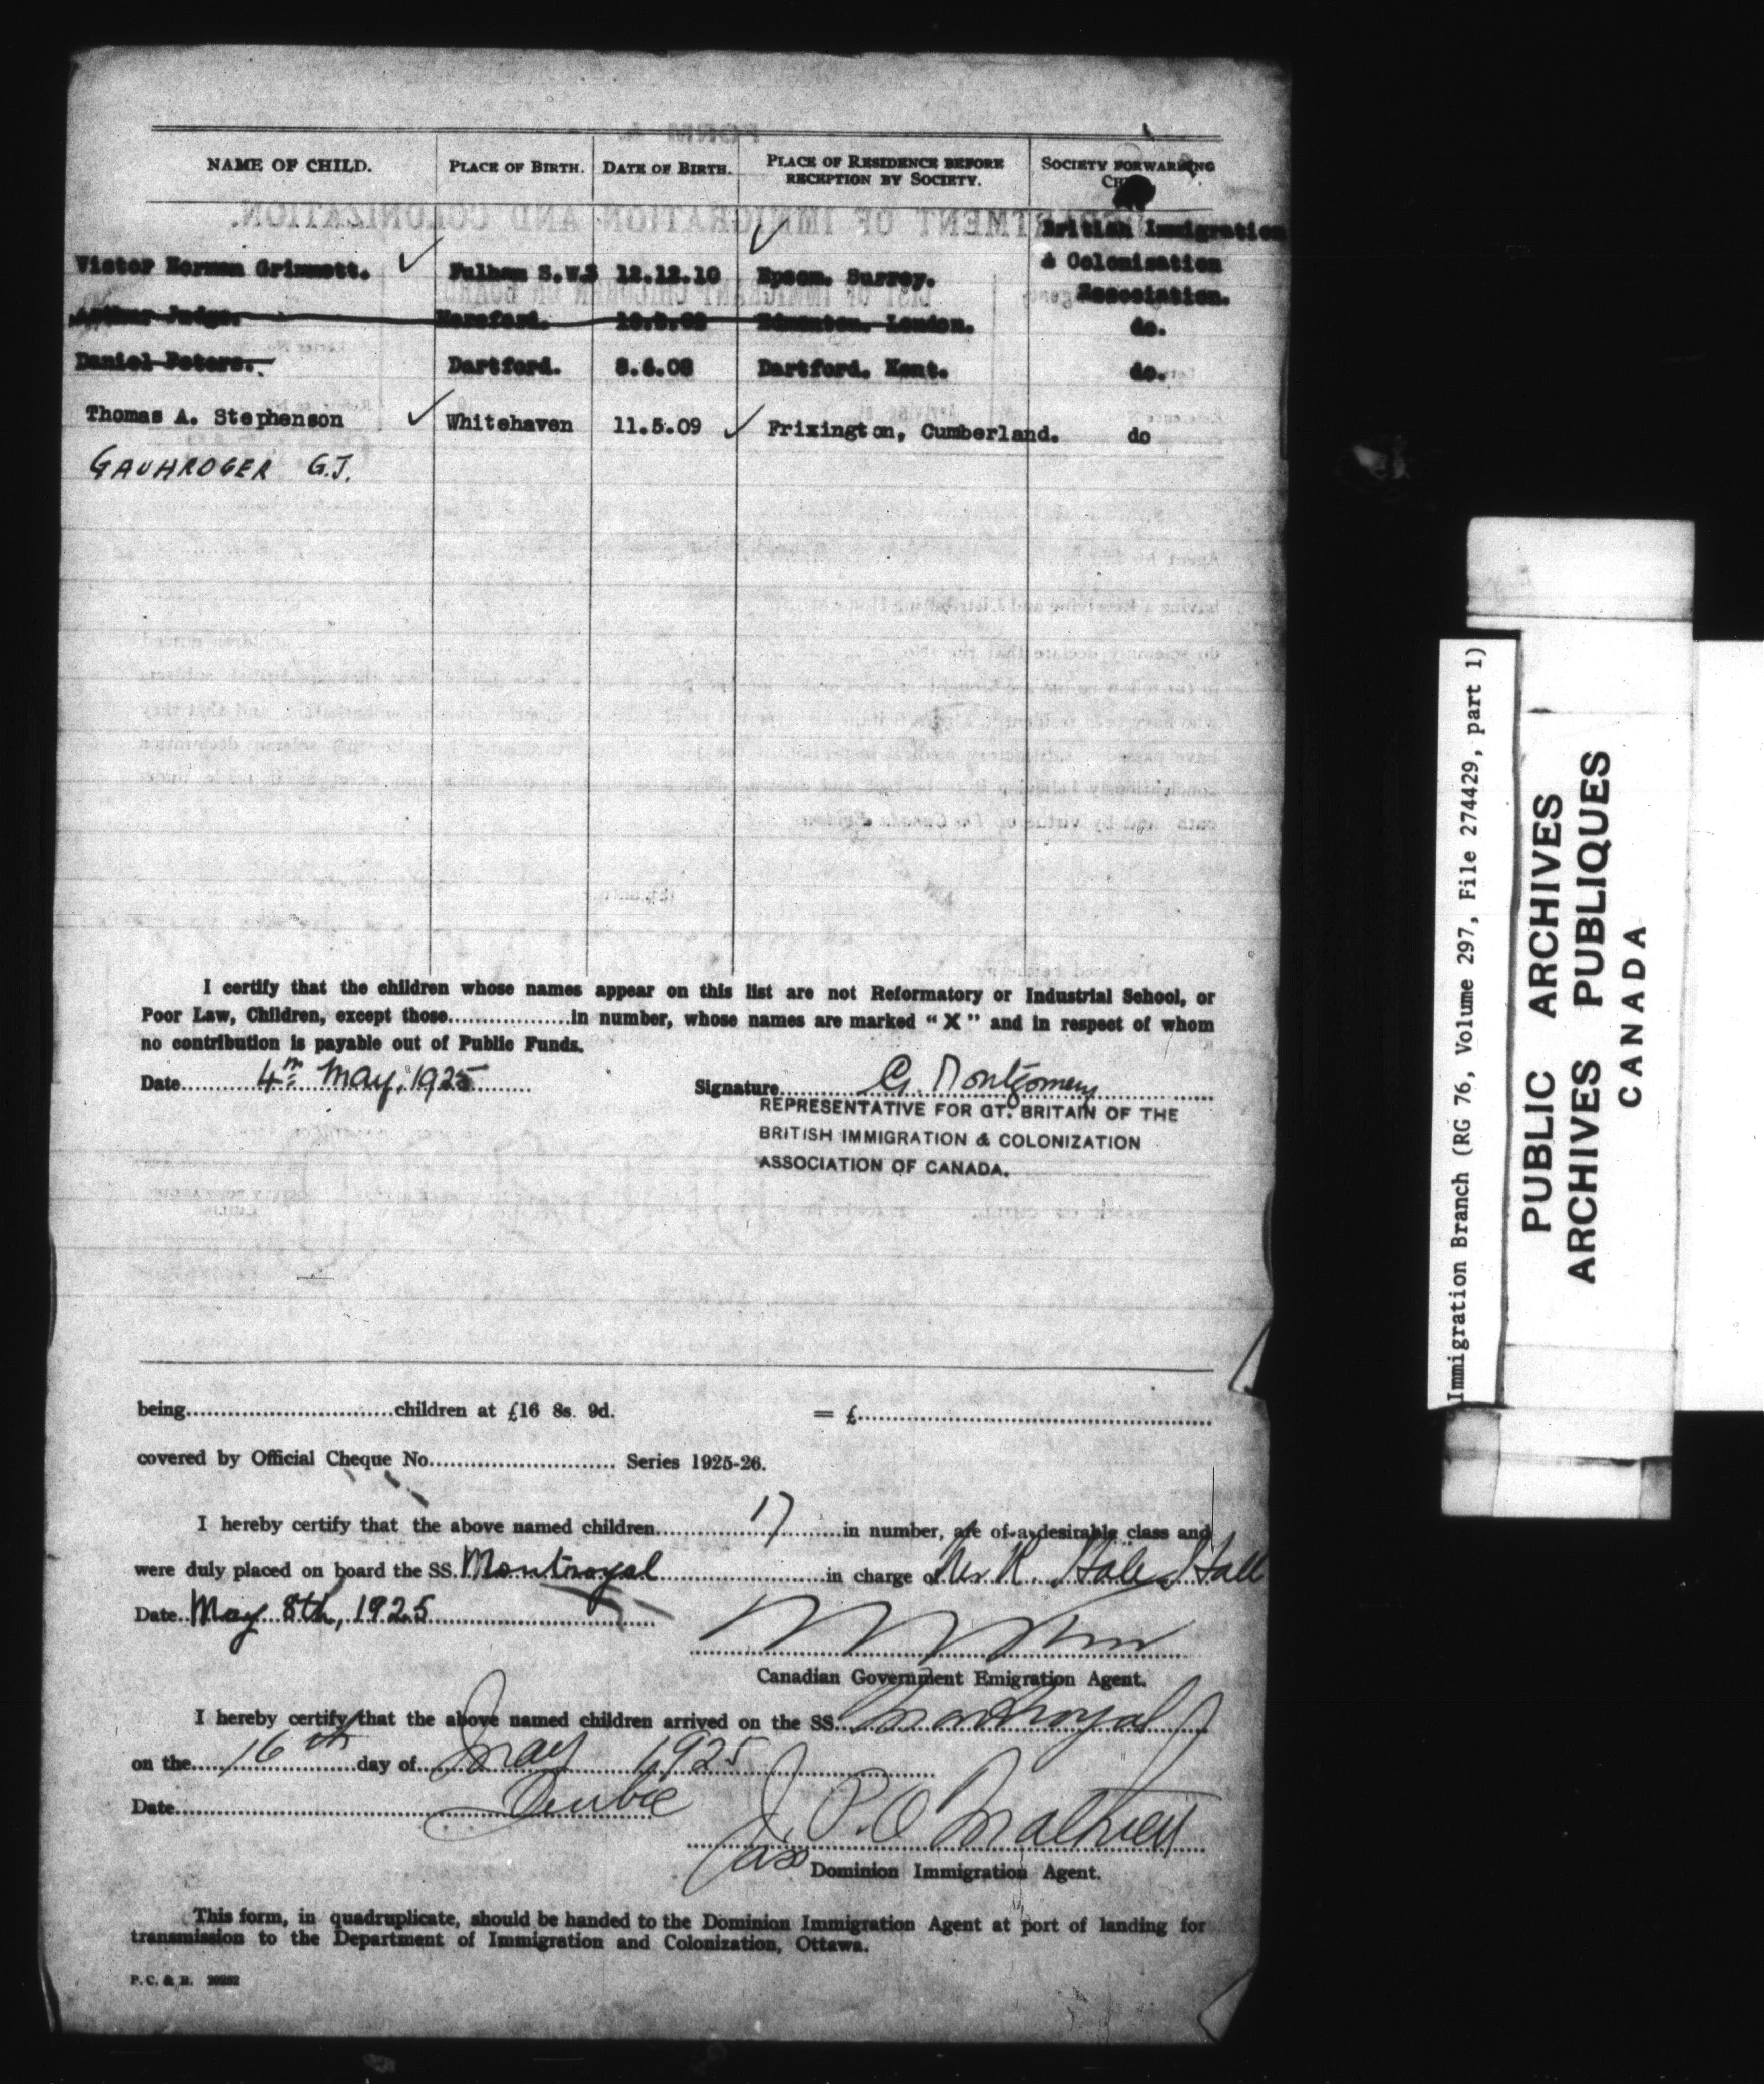 NAME OF CHILD. PLACE OF BIRTH. DATE OF BIRTH. PLACE OF RESIDENCE BEFORE RECEPTION BY SOCIETY. SOCIETY FORWARDING
British Immigration
Victor Norman Grimmett. Fulham S.W. 12.12.10 Epsom. Surrey. & Colonisation
Association.
Arthur Judge. Edmonton. London. do.
Daniel Peters. Dartford. 8.6.08 Dartford. Kent. do.
Thomas A. Stephenson Whitehaven 11.5.09 Frixington, Cumberland. do
GAUHROGER G.J.
I certify that the children whose names appear on this list are not Reformatory or Industrial School, or
Poor Law, Children, except those..................in number, whose names are marked "X" and in respect of whom
no contribution is payable out of Public Funds.
Date 4th May, 1925 Signature G. Montgomery
REPRESENTATIVE FOR GT. BRITAIN OF THE
BRITISH IMMIGRATION & COLONIZATION
ASSOCIATION OF CANADA.
being children at £16 8s. 9d. = £
covered by Official Cheque No. Series 1925-26.
I hereby certify that the above named children 17 in number, are of a desirable class and
were duly placed on board the SS. Montroyal in charge of Hall
Date May 8th, 1925
Canadian Government Emigration Agent.
I hereby certify that the above named children arrived on the SS. Montroyal
on the 16th day of May 1925
Date Quebec
J. P. O
Dominion Immigration Agent.
This form, in quadruplicate, should be handed to the Dominion Immigration Agent at port of landing for
transmission to the Department of Immigration and Colonization, Ottawa.
P.C. & R. 20252
Immigration Branch (RG 76, Volume 297, File 274429, part 1)
PUBLIC ARCHIVES
ARCHIVES PUBLIQUES
CANADA